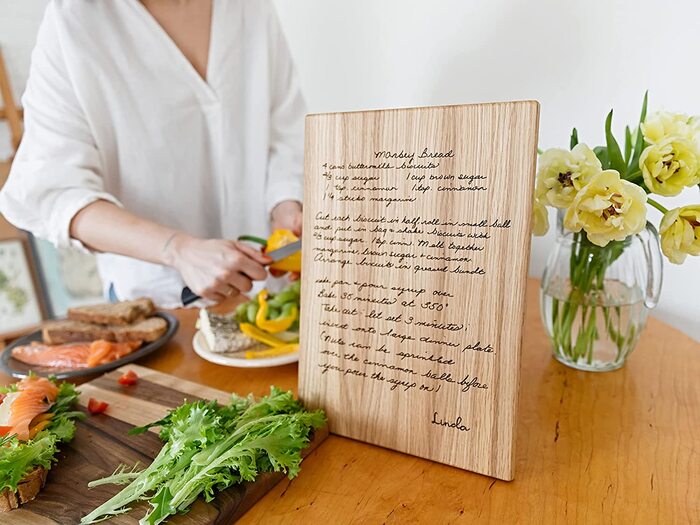 Monkey Bread
4 cans buttermilk biscuits
2/3 cup sugar 1 cup brown sugar
1 tsp. cinnamon 1 tsp. cinnamon
1 1/4 sticks margarine
Cut each biscuit in half, roll in small ball
and put in bag + shake biscuits with
2/3 cup sugar 1 tsp cinn. Melt together
margarine, brown sugar + cinnamon
Arrange biscuits in greased bundt
cake pan + pour syrup over
Bake 35 minutes at 350°
Take out - let set 3 minutes;
invert onto large dinner plate
(Nuts can be sprinkled
over the cinnamon balls before
you pour the syrup on)
Linda